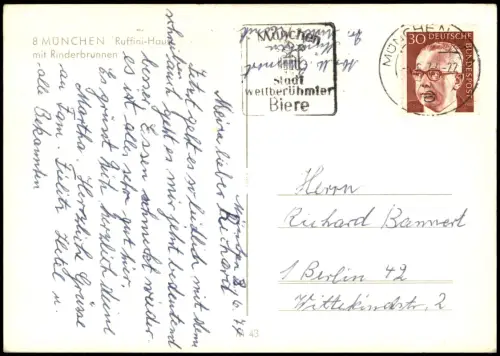 8 MÜNCHEN Ruffini-Haus
mit Rinderbrunnen
MÜNCHEN
Stadt
weltberühmter
Biere
MÜNCHEN
30
DEUTSCHE
BUNDESPOST
München 3.6.74
Meine lieber Richard
Jetzt geht es leidlich mit dem
schreiben geht es mir jetzt bedeutend
besser, Essen schmeckt wieder
es ist alles sehr gut hier,
Es grüsst Dich herzlich deine
Martha. Herzliche Grüsse
an Fam. Fielitz Hetel u.
alle Bekannten
Herrn
Richard Bannert
1 Berlin 42
Wittekindstr. 2
43